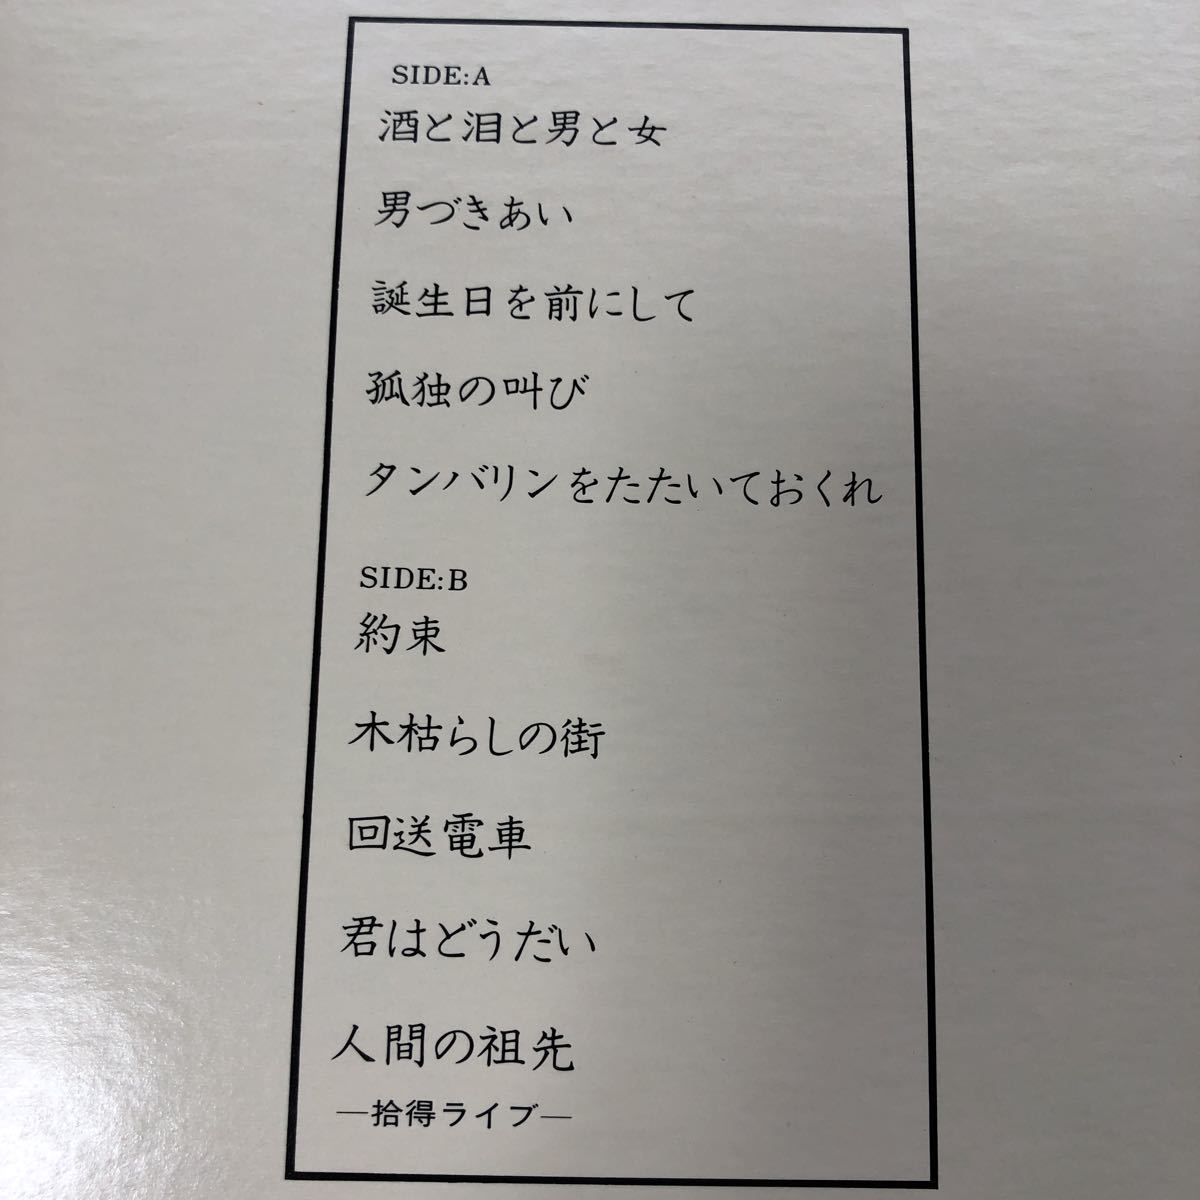 SIDE:A
酒と泪と男と女
男づきあい
誕生日を前にして
孤独の叫び
タンバリンをたたいておくれ
SIDE:B
約束
木枯らしの街
回送電車
君はどうだい
人間の祖先
—拾得ライブ—